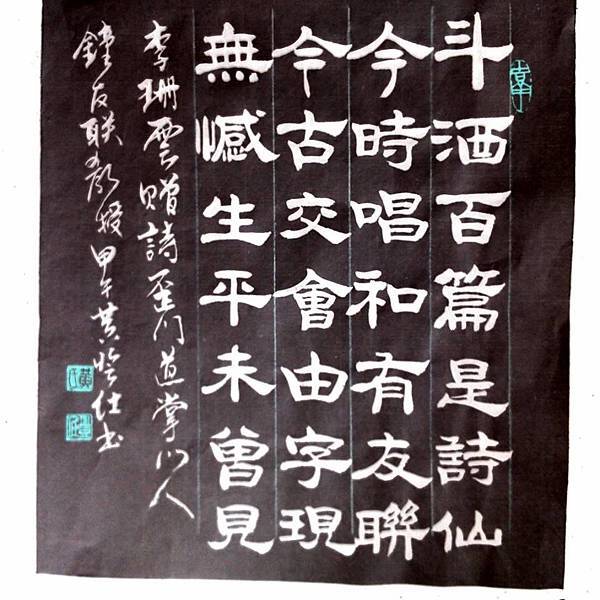 斗酒百篇是詩仙
今時唱和有友聯
今古交會由字現
無憾生平未曾見
李珊雲贈詩歪门道掌门人
鐘友联教授甲午黄仕书